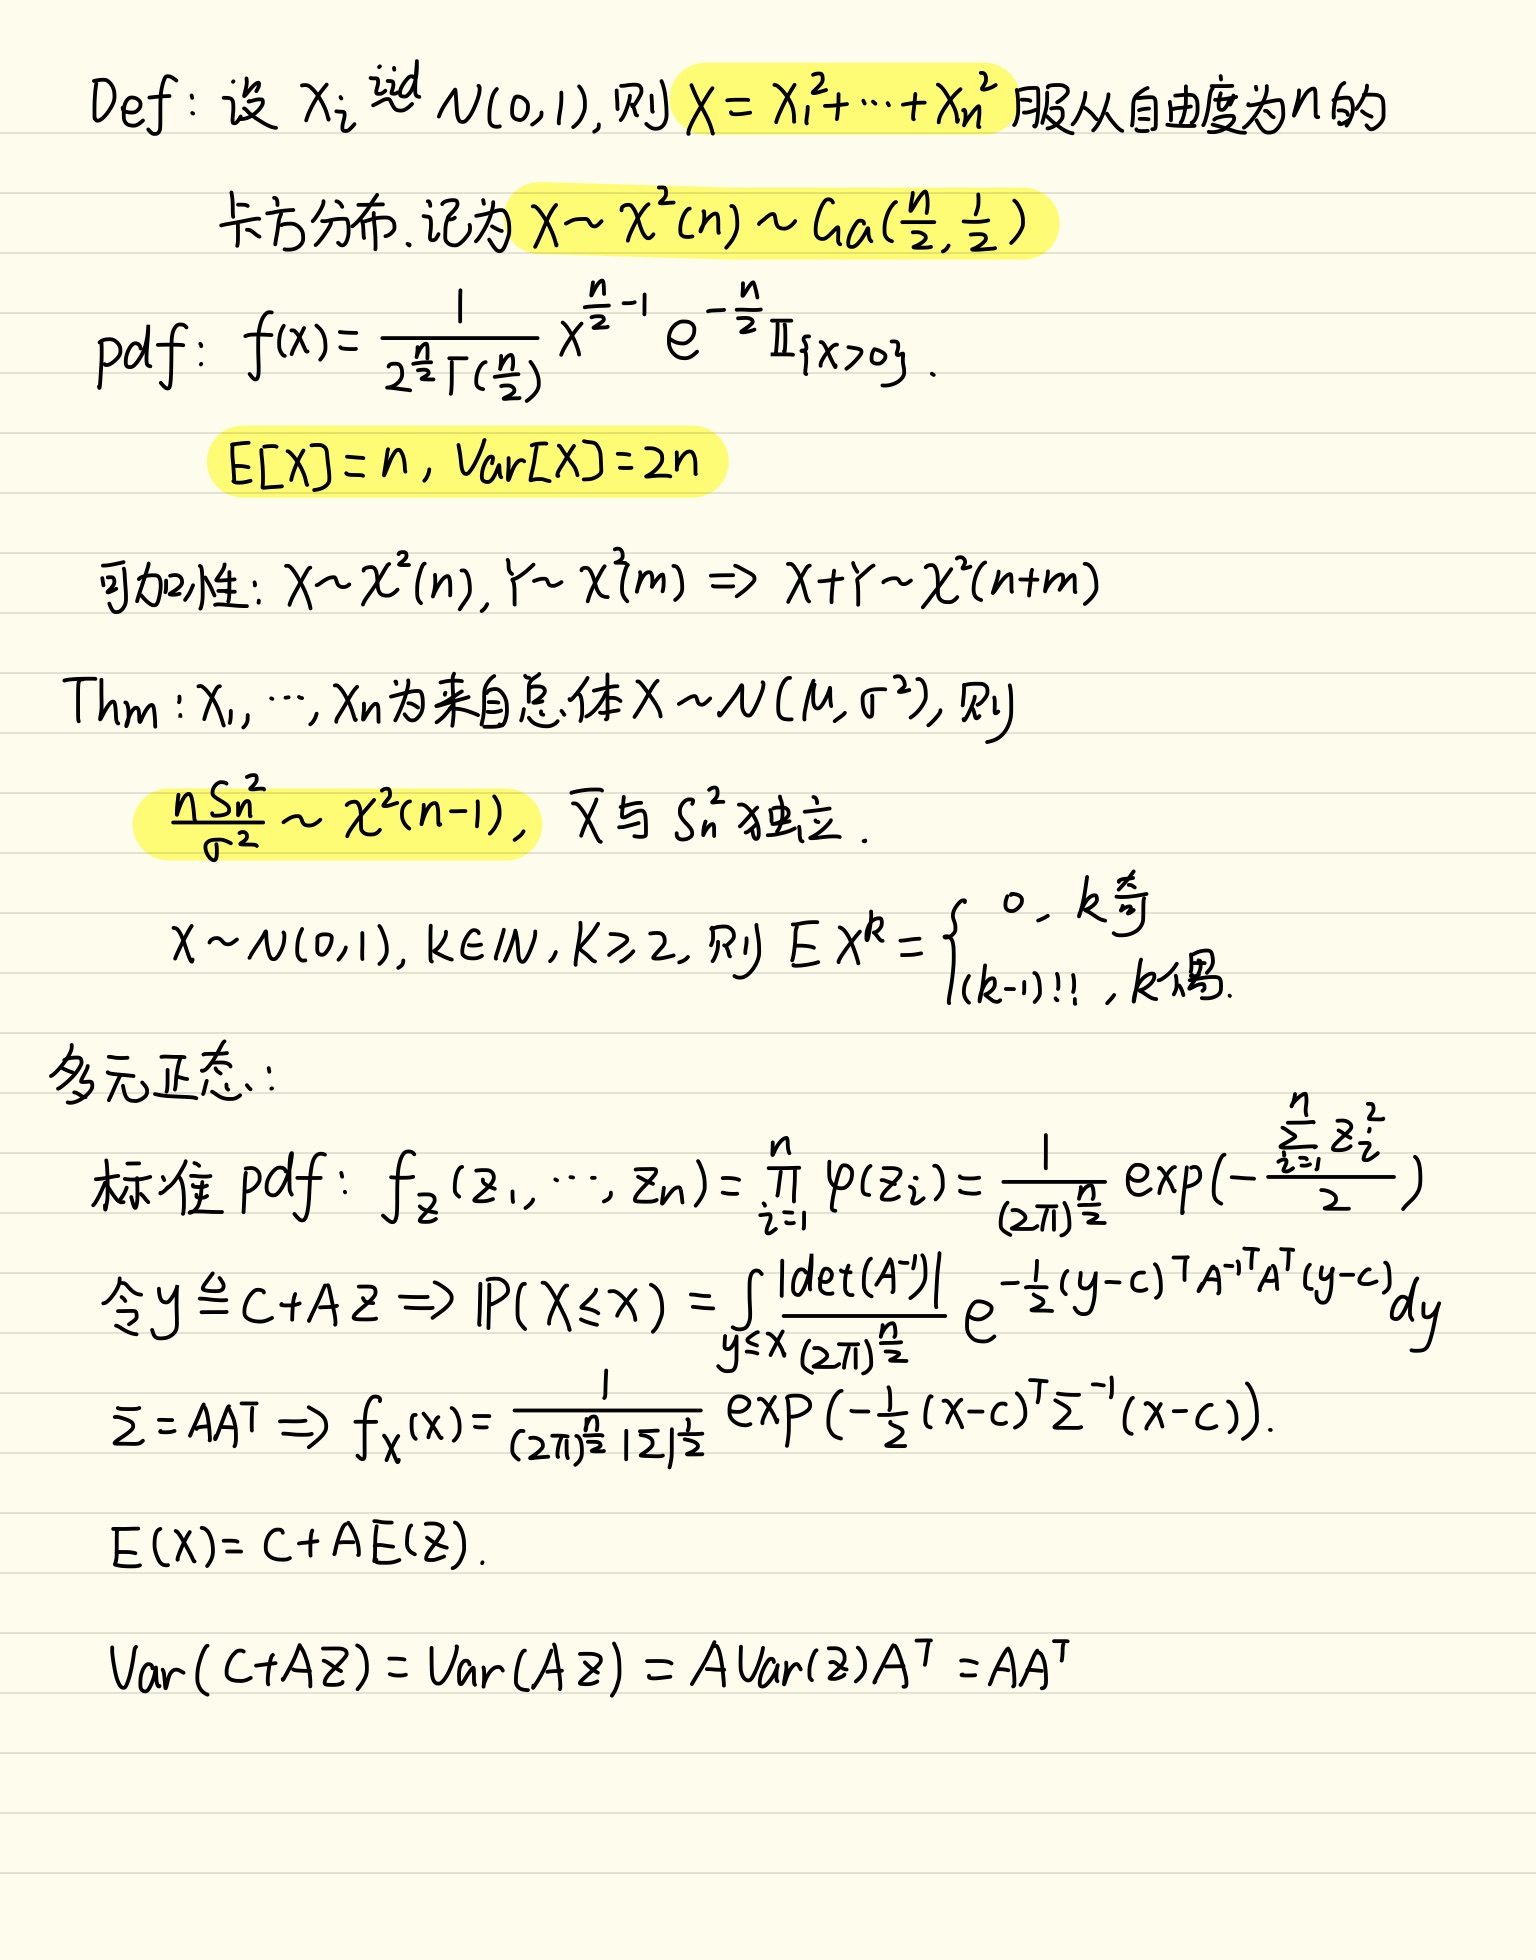 Def: 设 X_i iid~ N(0,1), 则 X = X_1^2+⋯+X_n^2 服从自由度为n的
卡方分布.记为 X~χ^2(n) ~ Ga(n/2, 1/2)
pdf: f(x) = 1/(2^{n/2} Γ(n/2)) x^{n/2 -1} e^{-n/2} 𝕀_{{x>0}}.
E[X] = n, Var[X] = 2n
可加性: X~χ^2(n), Y~χ^2(m) => X+Y~χ^2(n+m)
Thm: X_1, ⋯, X_n为来自总体X~N(μ, σ^2), 则
nS_n^2/σ^2 ~ χ^2(n-1), X̄与 S_n^2 独立.
X~N(0,1), K∈ℕ, K≥2, 则 EX^k = { 0, k奇
(k-1)!!, k偶.
多元正态:
标准 pdf: f_Z(z_1, ⋯, z_n) = ∏_{i=1}^n φ(z_i) = 1/(2π)^{n/2} exp(- ∑_{i=1}^n z_i^2 / 2)
令y ≜ C+AZ => ℙ(X≤x) = ∫_{y≤x} |det(A^{-1})|/(2π)^{n/2} e^{-1/2 (y-c)^T A^{-1T} A^T (y-c)} dy
Σ=AA^T => f_X(x) = 1/((2π)^{n/2} |Σ|^{1/2}) exp(-1/2 (x-c)^T Σ^{-1} (x-c)).
E(X) = C+AE(Z).
Var(C+AZ) = Var(AZ) = AVar(Z)A^T = AA^T